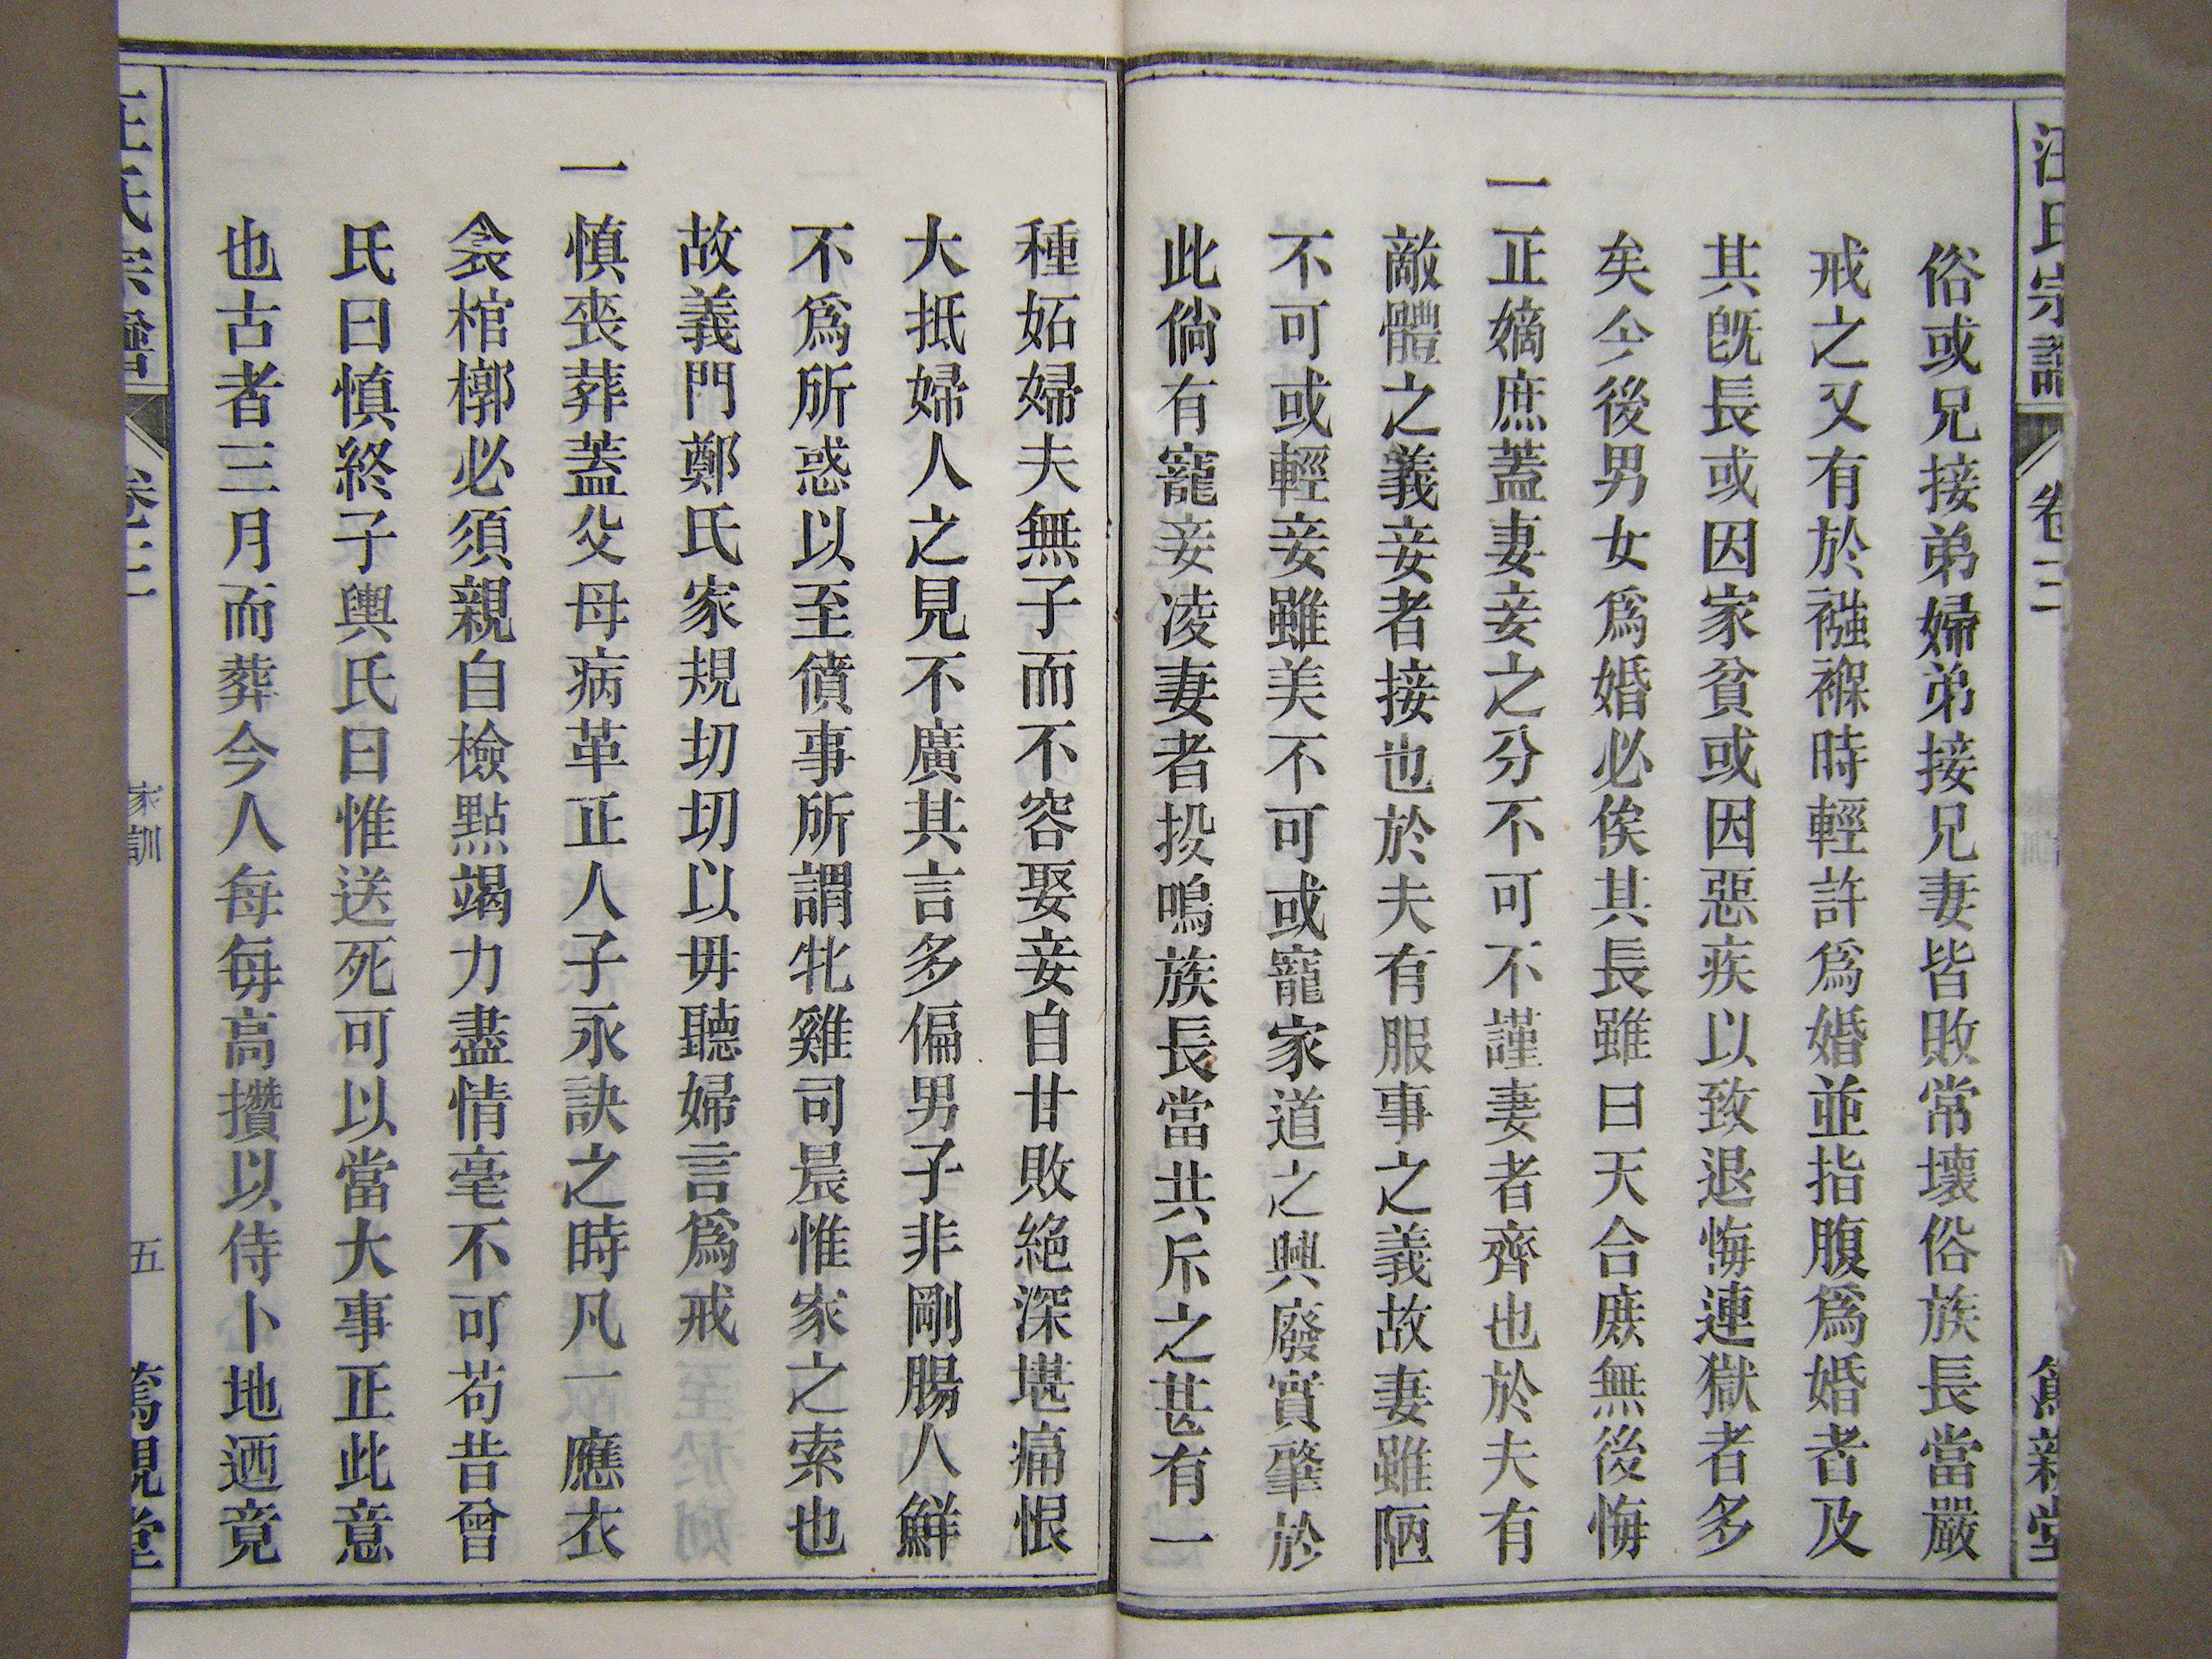 汪氏宗譜 卷三 篤親堂
俗或兄接弟婦弟接兄妻皆敗常壞俗族長當嚴
戒之又有於襁褓時輕許爲婚並指腹爲婚者及
其旣長或因家貧或因惡疾以致退悔連獄者多
矣今後男女爲婚必俟其長雖曰天合庶無後悔
一正嫡庶蓋妻妾之分不可不謹妻者齊也於夫有
敵體之義妾者接也於夫有服事之義故妻雖陋
不可或輕妾雖美不可或寵家道之興廢實肇於
此倘有寵妾凌妻者投鳴族長當共斥之甚有一
種妬婦夫無子而不容娶妾自甘敗絕深堪痛恨
大抵婦人之見不廣其言多偏男子非剛腸人鮮
不爲所惑以至僨事所謂牝雞司晨惟家之索也
故義門鄭氏家規切切以毋聽婦言爲戒
一慎喪葬蓋父母病革正人子永訣之時凡一應衣
衾棺槨必須親自檢點竭力盡情毫不可苟昔曾
氏曰慎終子輿氏曰惟送死可以當大事正此意
也古者三月而葬今人每每高攢以侍卜地迺竟
汪氏宗譜 卷三 家訓 五 篤親堂